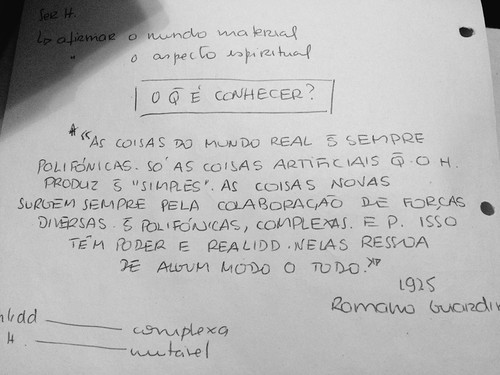 SER H.
↳ afirmar o mundo material
" o aspecto espiritual
O Q̄ É CONHECER?
* "AS COISAS DO MUNDO REAL S̄ SEMPRE
POLIFÓNICAS. SÓ AS COISAS ARTIFICIAIS Q̄ O H.
PRODUZ S̄ "SIMPLES". AS COISAS NOVAS
SURGEM SEMPRE PELA COLABORAÇÃO DE FORÇAS
DIVERSAS. S̄ POLIFÓNICAS, COMPLEXAS. E P. ISSO
TÊM PODER E REALIDD. NELAS RESSOA
DE ALGUM MODO O TODO."
1925
Romano Guardin
complexa
H. mutável